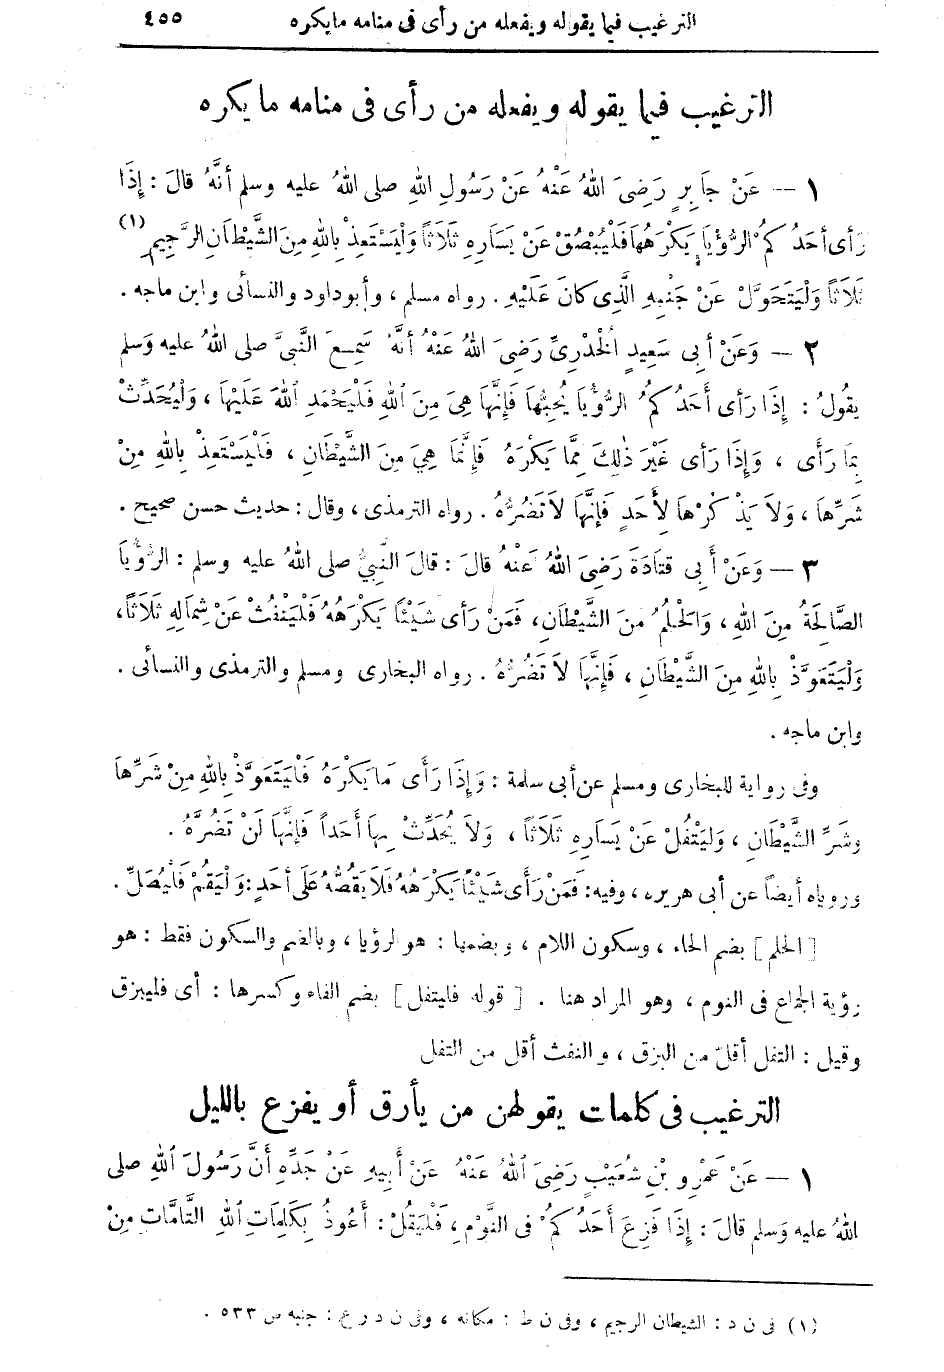 الترغيب فيما يقوله ويفعله من رأى فى منامه مايكره ٤٥٥
الترغيب فيما يقوله ويفعله من رأى فى منامه مايكره
١ — عَنْ جاَبِرٍ رَضِىَ اللهُ عَنْهُ عَنْ رَسُولِ اللهِ صلى اللهُ عليه وسلم أنَّهُ قالَ : إِذَا
رَأى أحَدُكمُ الرُّؤْيَا يَكْرَهُهَا فَلْيَبْصُقْ عَنْ يَسَارِهِ ثَلاَثاً وَلْيَسْتَعِذْ بِاللهِ مِنَ الشَّيْطَانِ الرَّجِيمِ (١)
ثَلاَثاً وَلْيَتَحَوَّلْ عَنْ جَنْبِهِ الَّذِى كانَ عَلَيْهِ . رواه مسلم ، وأبوداود والنسائى وابن ماجه .
٢ — وَعَنْ أبِى سَعِيدٍ الْخُدْرِىِّ رَضِىَ اللهُ عَنْهُ أنَّهُ سَمِعَ النَّبِىَّ صلى اللهُ عليه وَسلم
يقُولُ : إِذَا رَأى أَحَدُكمُ الرُّؤْيَا يُحِبُّهَا فَإِنَّهَا هِىَ مِنَ اللهِ فَلْيَحْمَدِ اللهَ عَلَيْهَا ، وَلْيُحَدِّثْ
بِمَا رَأى ، وَإِذَا رَأى غَيْرَ ذٰلِكَ مِمَّا يَكْرَهُ فَإِنَّمَا هِىَ مِنَ الشَّيْطَانِ ، فَلْيَسْتَعِذْ بِاللهِ مِنْ
شَرِّهَا ، وَلاَ يَذْكُرْهَا لِأَحَدٍ فَإِنَّهَا لاَ تَضُرُّهُ . رواه الترمذى ، وقال : حديث حسن صحيح .
٣ — وَعَنْ أَبِى قتَادَةَ رَضِىَ اللهُ عَنْهُ قالَ : قالَ النَّبِىُّ صلى اللهُ عليه وسلم : الرُّؤْيَا
الصَّالِحَةُ مِنَ اللهِ ، وَالْحُلْمُ مِنَ الشَّيْطَانِ ، فَمَنْ رَأى شَيْئاً يَكْرَهُهُ فَلْيَنْفُثْ عَنْ شِمَالِهِ ثَلاَثاً ،
وَلْيَتَعَوَّذْ بِاللهِ مِنَ الشَّيْطَانِ ، فَإِنَّهَا لاَ تَضُرُّهُ . رواه البخارى ومسلم والترمذى والنسائى .
وابن ماجه .
وفى رواية للبخارى ومسلم عن أبى سلمة : وَإِذَا رَأَى مَا يَكْرَهُ فَلْيَتَعَوَّذْ بِاللهِ مِنْ شَرِّهَا
وشَرِّ الشَّيْطَانِ ، وَليَتْفُلْ عَنْ يَسَارِهِ ثَلاَثاً ، وَلاَ يُحَدِّثْ بِهَا أَحَداً فَإِنَّهَا لَنْ تَضُرَّهُ .
وروياه أيضاً عن أبى هريره ، وفيه : فَمَنْ رَأى شَيْئاً يَكْرَهُهُ فَلاَ يَقُصُّهُ عَلَى أحَدٍ : وَلْيَقُمْ فَلْيُصَلِّ .
[ الحلم ] بضم الحاء ، وسكون اللام ، وبضمها : هو الرؤيا ، وبالضم والسكون فقط : هو
رؤية الجماع فى النوم ، وهو المراد هنا . [ قوله فليتفل ] بضم الفاء وكسرها : أى فليبزق
وقيل : التفل أقلّ من البزق ، والنفث أقل من التفل
الترغيب فى كلمات يقولهن من يأرق أو يفزع بالليل
١ — عَنْ عَمْرِو بْنِ شُعَيْبٍ رَضِىَ اللهُ عَنْهُ عَنْ أَبِيهِ عَنْ جَدِّهِ أنَّ رَسُولَ اللهِ صلى
اللهُ عليه وَسلم قالَ : إِذَا فَزِعَ أَحَدُكمُ فى النَّوْمِ ، فَلْيَقُلْ : أَعُوذُ بِكَلِمَاتِ اللهِ التَّامَّاتِ مِنْ
(١) فى ن د : الشيطان الرجيم ، وفى ن ط : مكانه ، وفى ن د ع : جنبه ص ٥٣٣ .